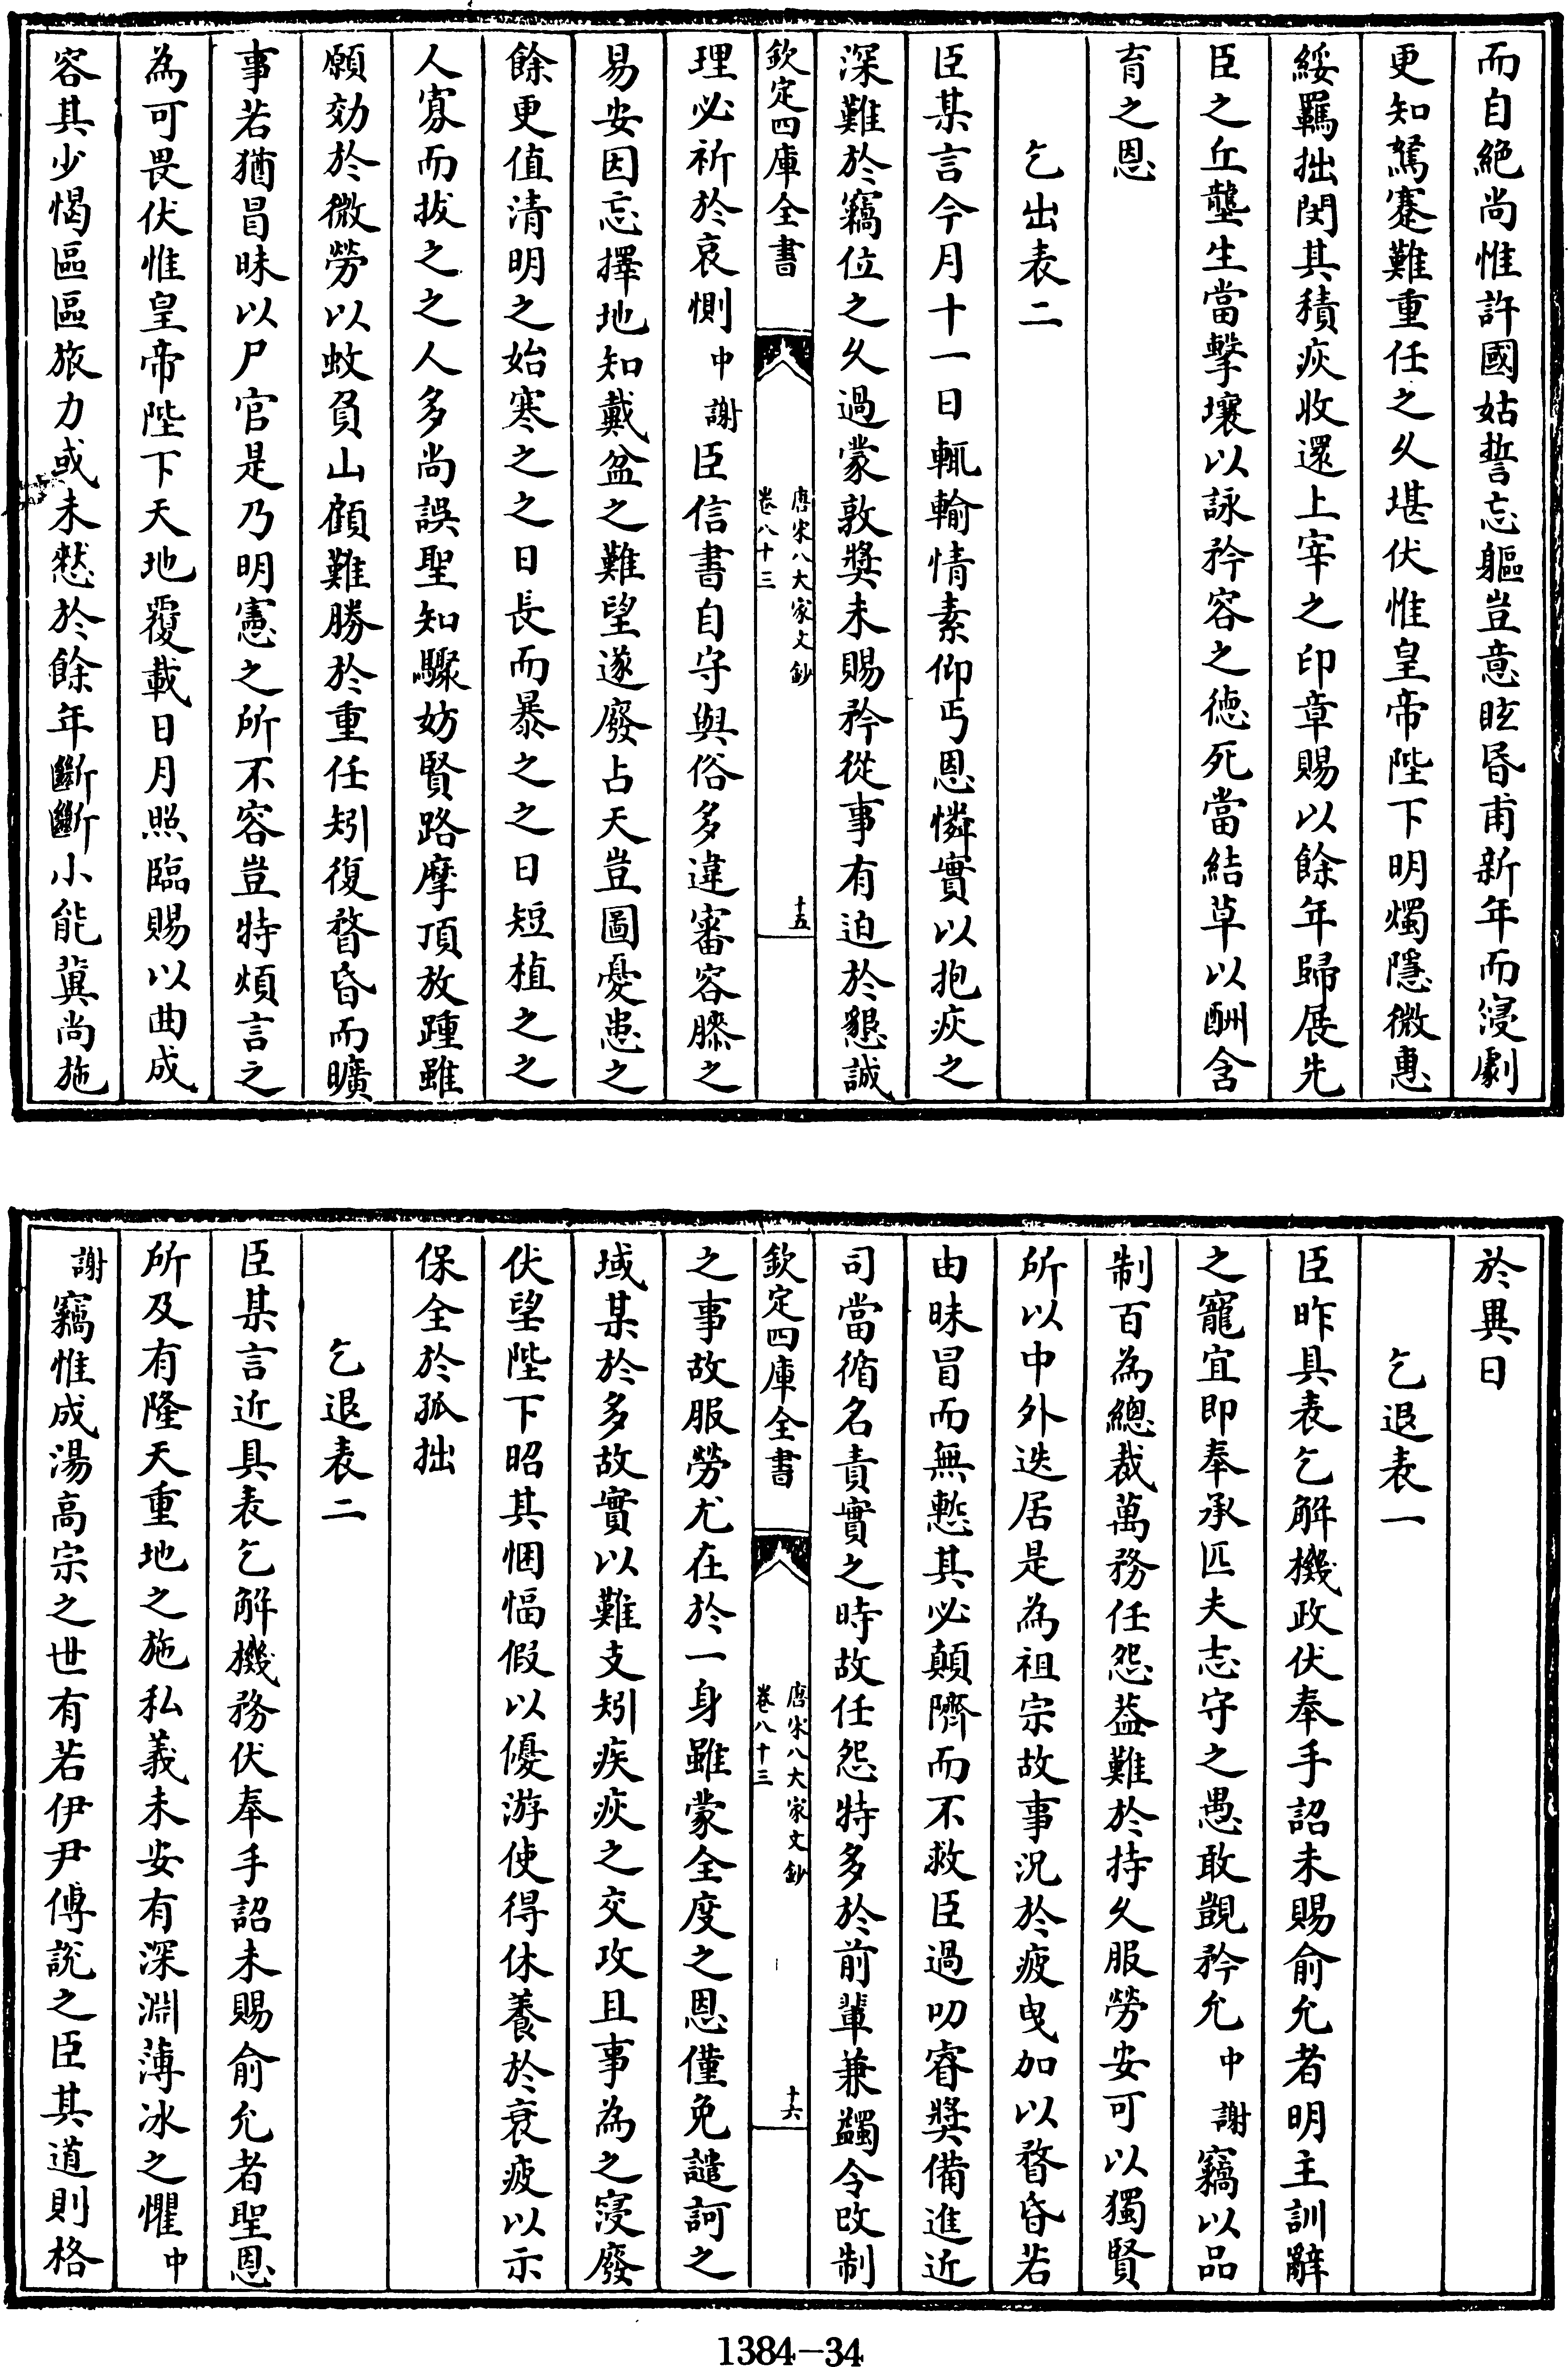 而自絶尚惟許國姑誓忘軀豈意眩昏甫新年而浸劇
更知駑蹇難重任之久堪伏惟皇帝陛下明燭隱微惠
綏羈拙閔其積疢收還上宰之印章賜以餘年歸展先
臣之丘壟生當擊壤以詠矜容之徳死當結草以酬含
育之恩
乞出表二
臣某言今月十一日輒輸情素仰丐恩憐實以抱疢之
深難於竊位之久過蒙敦奬未賜矜從事有迫於懇誠
欽定四庫全書
唐宋八大家文鈔
卷八十三
十五
理必祈於哀惻中謝臣信書自守與俗多違審容膝之
易安因忘擇地知戴盆之難望遂廢占天豈圖憂患之
餘更值清明之始寒之之日長而暴之之日短植之之
人寡而拔之之人多尚誤聖知驟妨賢路摩頂放踵雖
願効於微勞以蚊負山顧難勝於重任矧復瞀昏而曠
事若猶冒昧以尸官是乃明憲之所不容豈特煩言之
為可畏伏惟皇帝陛下天地覆載日月照臨賜以曲成
容其少愒區區旅力或未愆於餘年斷斷小能冀尚施
於異日
乞退表一
臣昨具表乞解機政伏奉手詔未賜俞允者明主訓辭
之寵宜即奉承匹夫志守之愚敢覬矜允中謝竊以品
制百為總裁萬務任怨葢難於持久服勞安可以獨賢
所以中外迭居是為祖宗故事況於疲曳加以瞀昏若
由昧冒而無慙其必顛隮而不救臣過叨睿奬備進近
司當循名責實之時故任怨特多於前輩兼蠲令改制
欽定四庫全書
唐宋八大家文鈔
卷八十三
十六
之事故服勞尤在於一身雖蒙全度之恩僅免譴訶之
域某於多故實以難支矧疾疢之交攻且事為之寖廢
伏望陛下昭其悃愊假以優游使得休養於衰疲以示
保全於孤拙
乞退表二
臣某言近具表乞解機務伏奉手詔未賜俞允者聖恩
所及有隆天重地之施私義未安有深淵薄冰之懼中
謝竊惟成湯高宗之世有若伊尹傅説之臣其道則格
1384-34